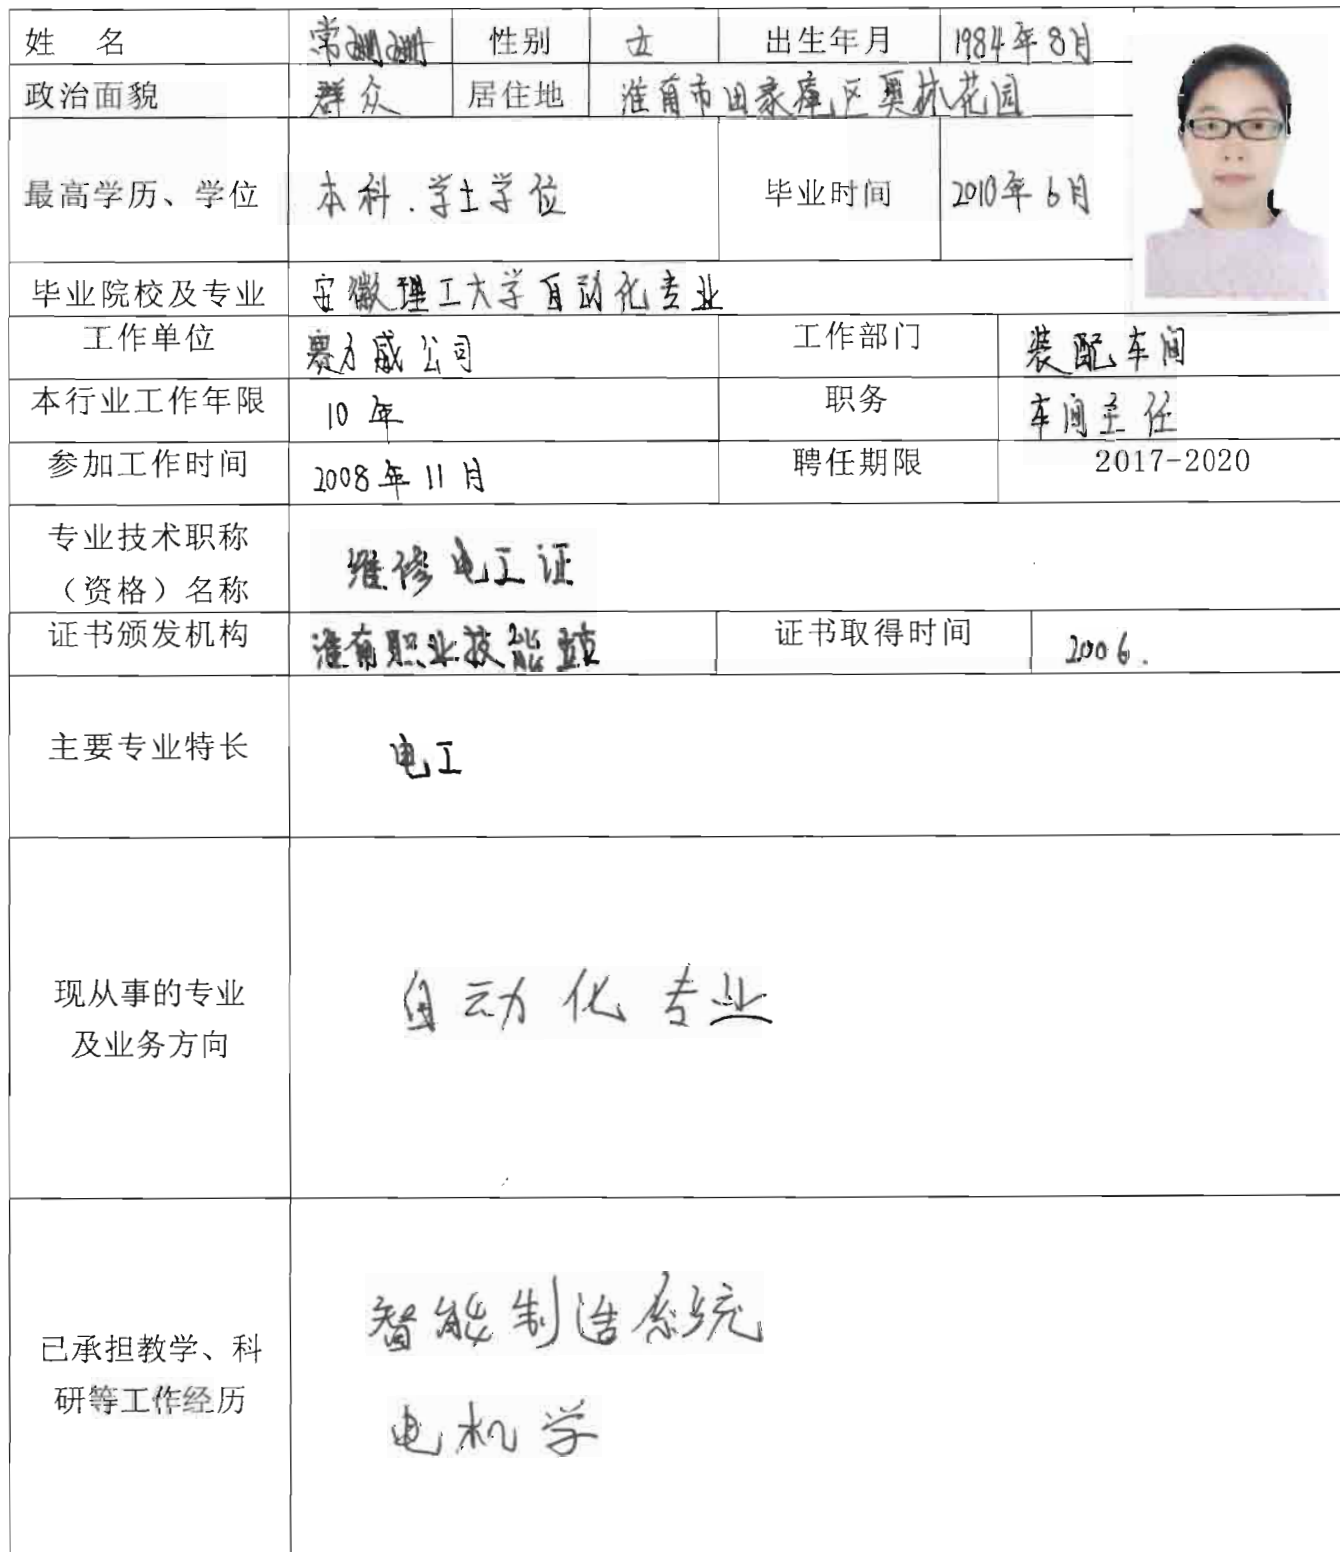 姓 名 常姗姗 性别 女 出生年月 1984年8月
政治面貌 群众 居住地 淮南市田家庵区奥林花园
最高学历、学位 本科.学士学位 毕业时间 2010年6月
毕业院校及专业 安徽理工大学自动化专业
工作单位 赛力威公司 工作部门 装配车间
本行业工作年限 10年 职务 车间主任
参加工作时间 2008年11月 聘任期限 2017-2020
专业技术职称
（资格）名称 维修电工证
证书颁发机构 淮南职业技能 证书取得时间 2006.
主要专业特长 电工
现从事的专业
及业务方向 自动化专业
已承担教学、科
研等工作经历
智能制造系统
电机学